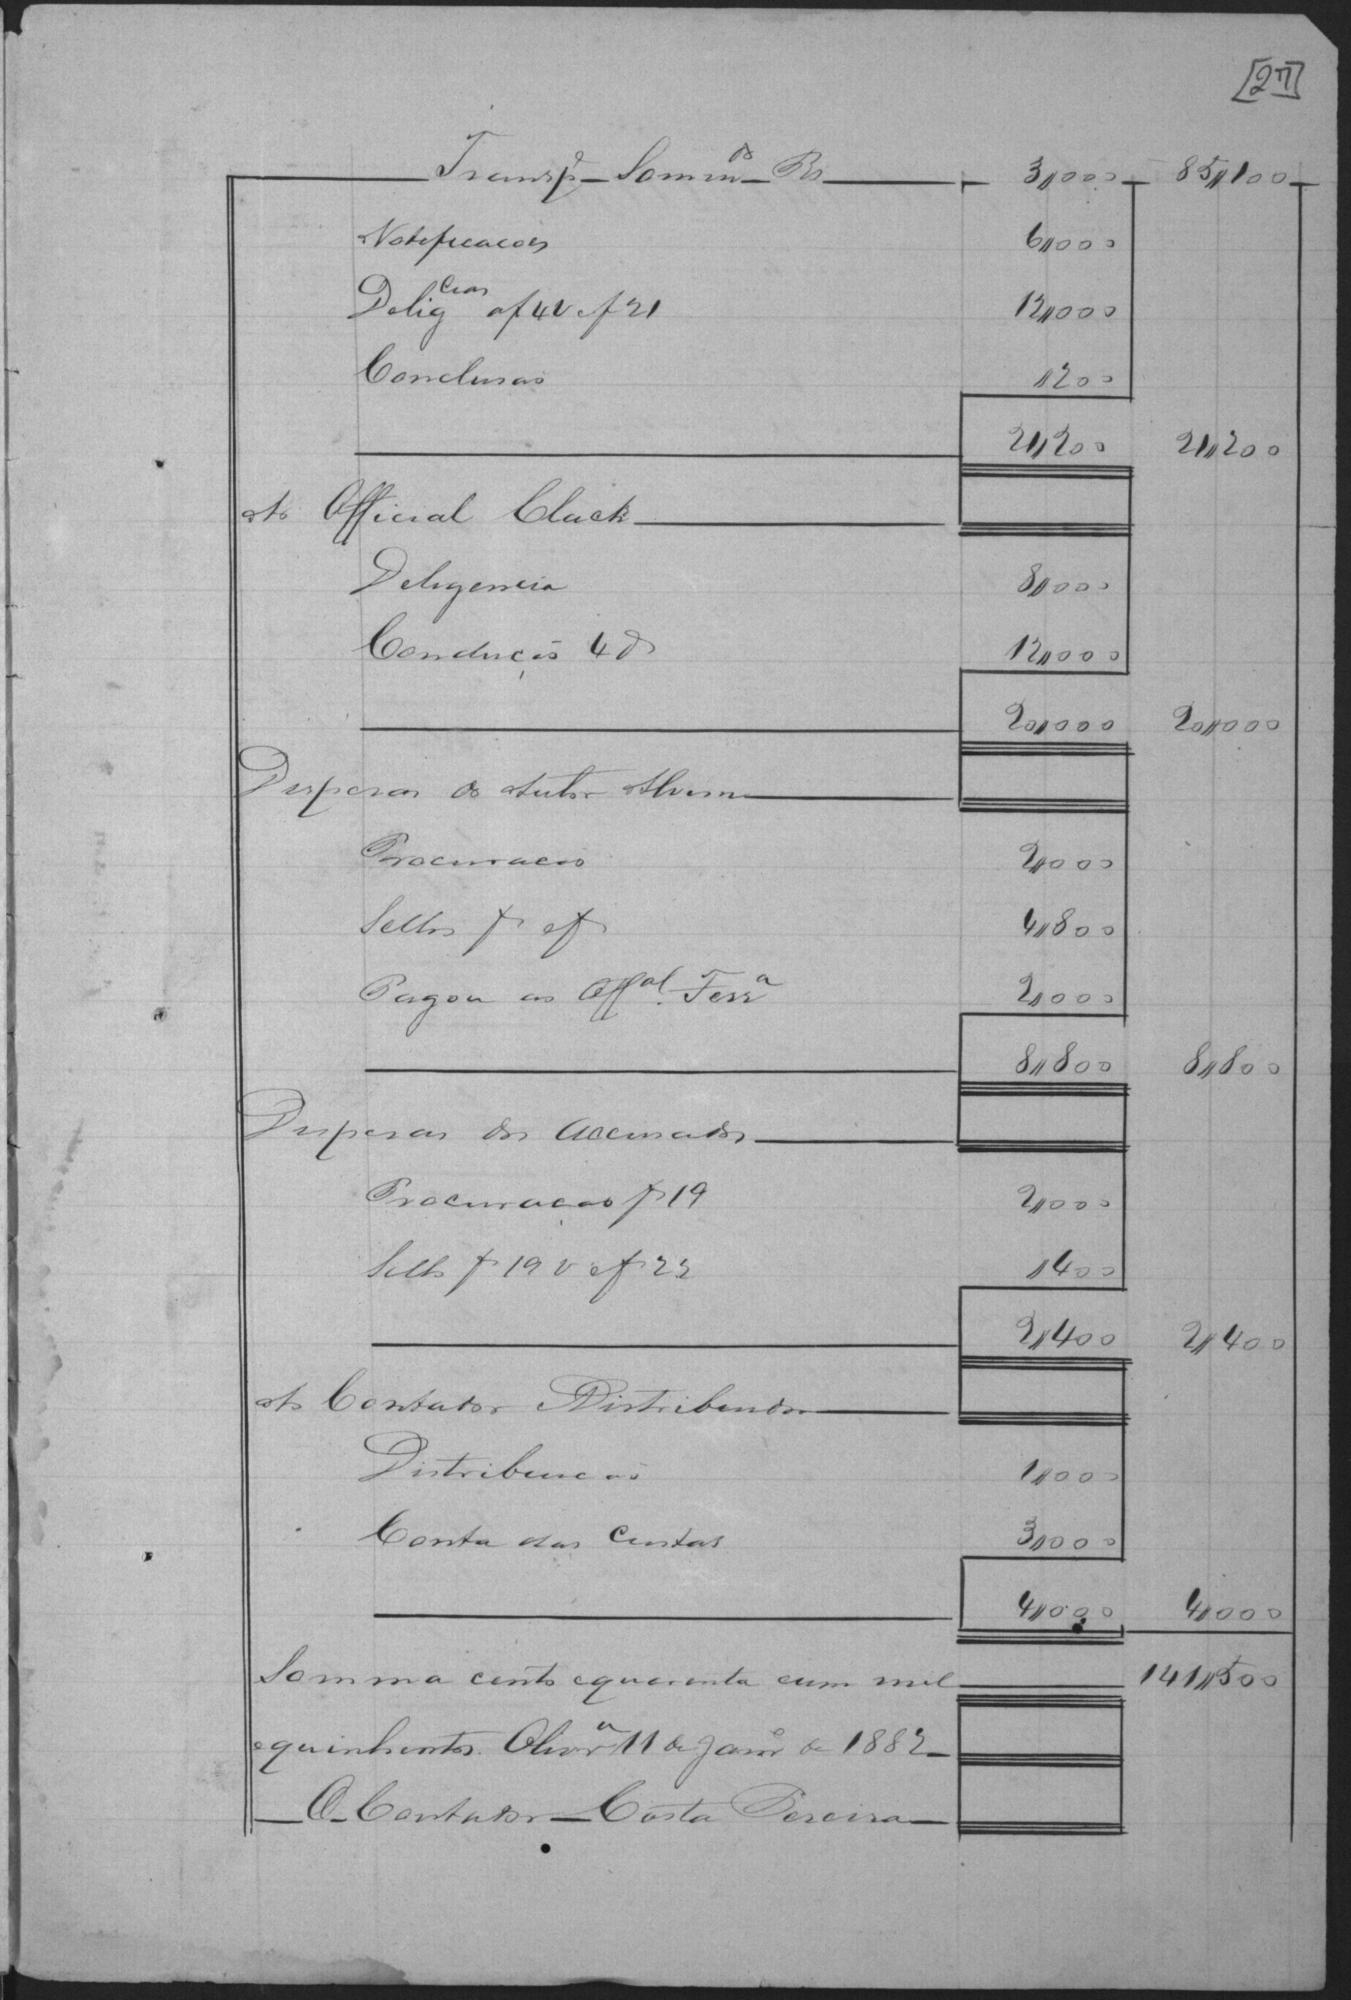 [27]
Transp.e Somm.as Rs 3,,000 85,,100
Notificacoes 6,,000
Delig.cias a f 4 v e f 21 12,,000
Conclusao ,,200
21,,200 21,,200
Ao Official Clack
Deligencia 8,,000
Conducçaõ 4 12,,000
20,,000 20,,000
Despesas do Autor
Procuracao 2,,000
Sellos f e f 4,,800
Pagou ao Off.al Ferr.a 2,,000
8,,800 8,,800
Despesas dos Accusados
Procuraçao f 19 2,,000
Sello f 19 v e f 22 ,,400
2,,400 2,,400
Ao Contador Distribuidor
Distribuicaõ 1,,000
Conta das Custas 3,,000
4,,000 4,,000
Somma cento equarenta eum mil 141,,500
equinhentos. Olivr.a 11 de Janr.o de 1882
O Contador Costa Pereira